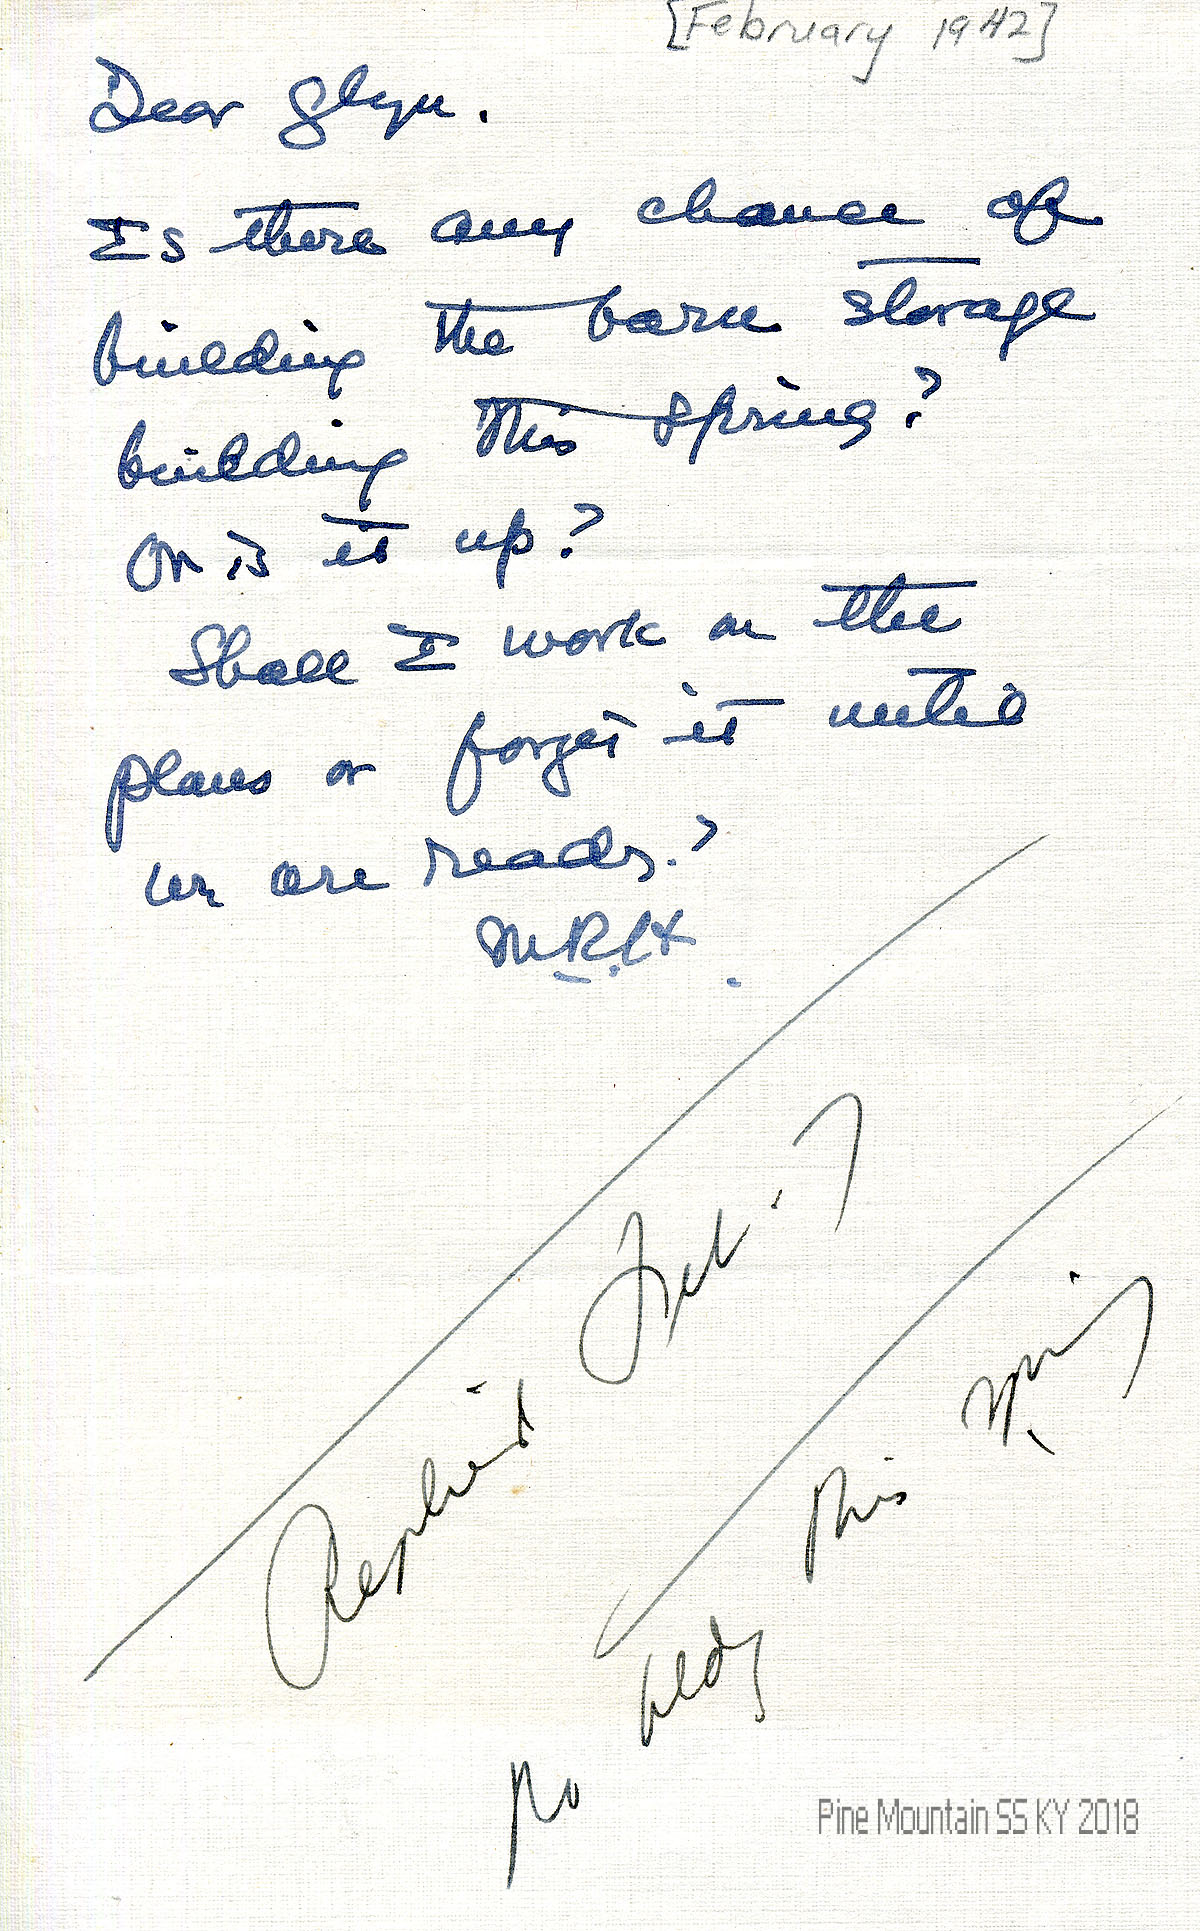 [February 1942]
Dear Glyn.
Is there any chance of
building the barn storage
building this spring?
Or is it up?
Shall I work on the
plans or forget it until
we are ready.?
M.R.H.
Replied Feb. 7
No bldg this spring
Pine Mountain SS KY 2018